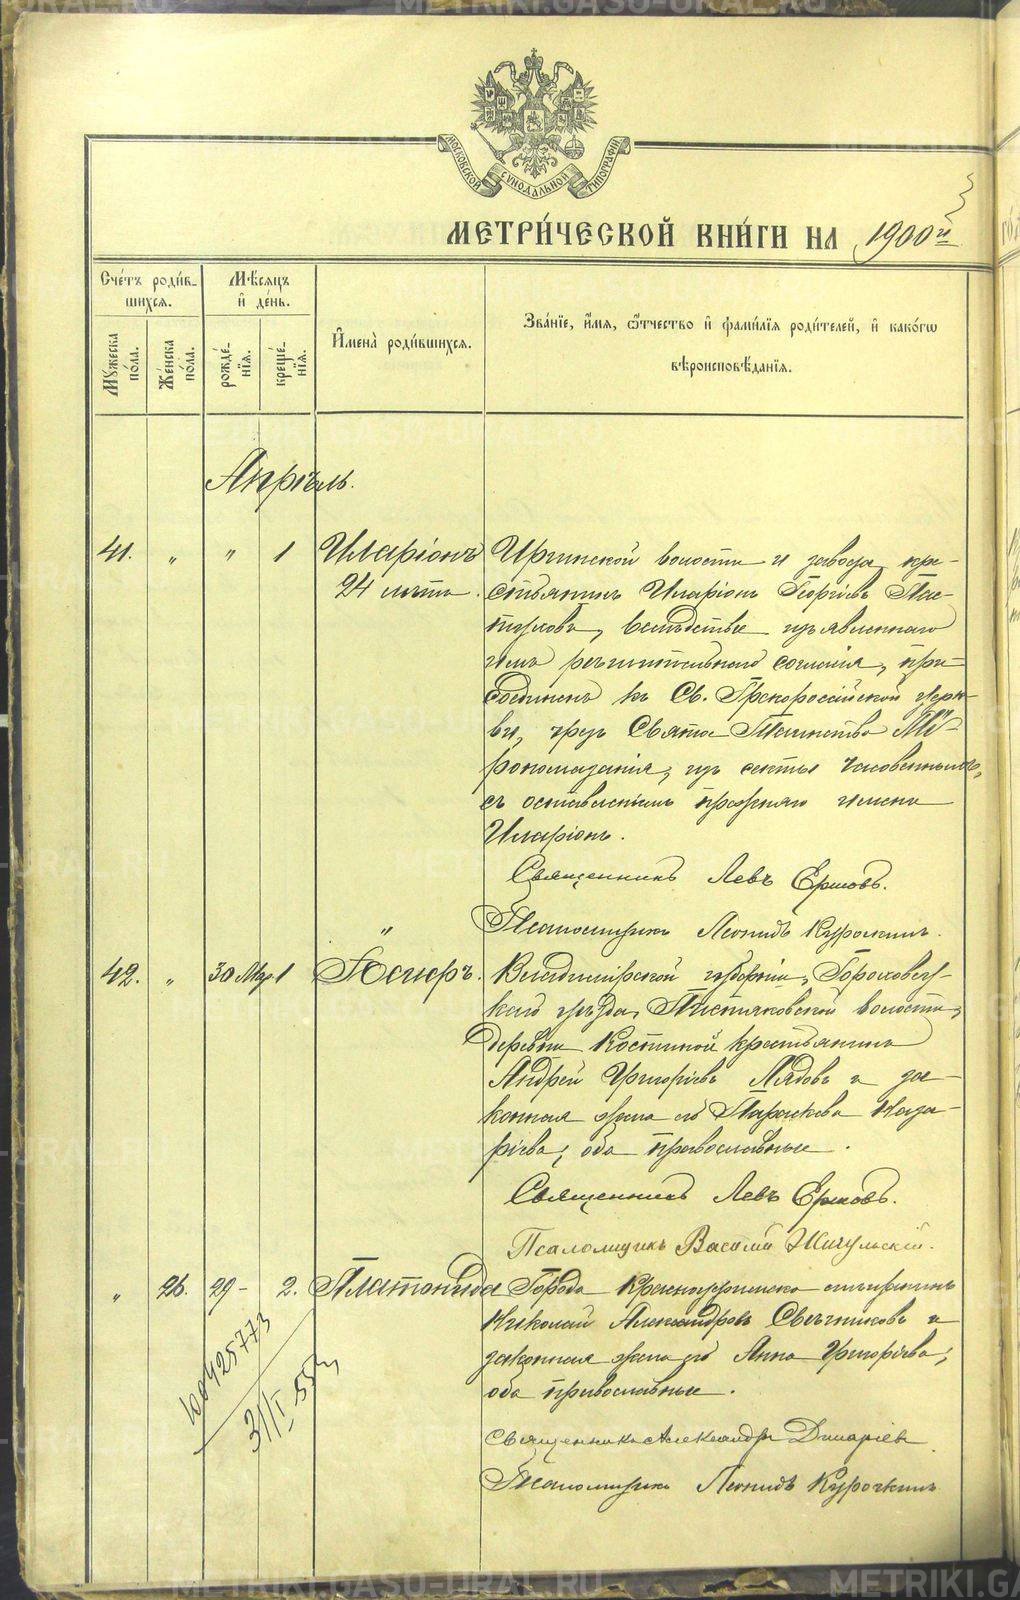 METRIKI.GASO-URAL.RU
МОСКОВСКОЙ СѴНОДАЛЬНОЙ ТИПОГРАФІИ
МЕТРИ́ЧЕСКОЙ КНИ́ГИ НА 1900й
Сче́тъ роди́в-
шихся.
Мѣ́сяцъ
и҆ де́нь.
Муже́ска
по́ла.
Же́нска
по́ла.
рожде́-
нія.
креще́-
нія.
И҆мена̀ роди́вшихся.
Зва́нїе, и҆́мя, ѻ҆́тчество и҆ фами́лїя роди́телей, и҆ како́гѡ
вѣроисповѣ́данїя.
Апрѣль.
41. " " 1 Иларіонъ Иргинской волости и завода кре-
24 лѣтъ. стьянинъ Иларіонъ Георгіевъ Пас-
туховъ, вслѣдствіе изъявленнаго
имъ рѣшительнаго согласія, при-
соединенъ къ Св. Грекороссійской церк-
ви, чрезъ Святое Таинство Мѵ-
ропомазанія, изъ секты часовенныхъ,
съ оставленіемъ прежняго имени
Иларіонъ.
Священникъ Левъ Ершовъ.
" Псаломщикъ Леонидъ Курочкинъ.
42. " 30 Мар 1 Асиръ. Владимірской губерніи, Гороховец-
каго уѣзда, Пистяковской волости,
деревни Костиной крестьянинъ
Андрей Григоріевъ Лядовъ и за-
конная жена его Параскева Наза-
ріева, оба православные.
Священникъ Левъ Ершовъ.
Псаломщикъ Василій Жигульскій.
" 26. 29 - 2. Платонида Города Красноуфимска мѣщанинъ
Николай Александровъ Свѣчниковъ и
законная жена его Анна Григоріева,
оба православные.
Священникъ Александръ Дикаріевъ
Псаломщикъ Леонидъ Курочкинъ
100425773
31/I 55г